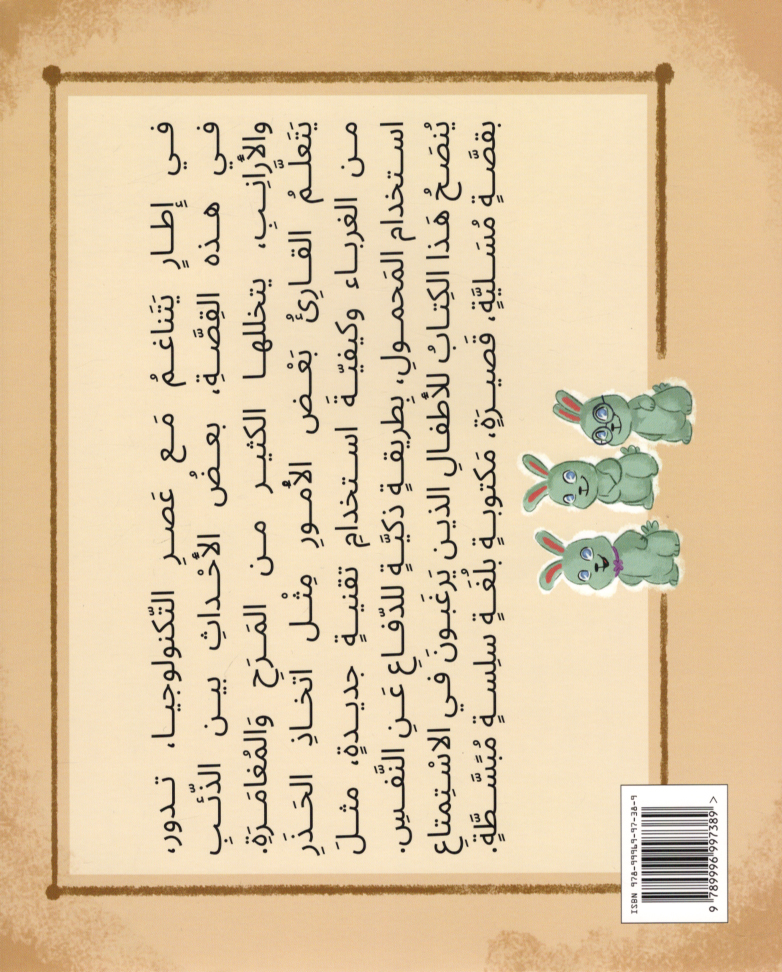 في إِطـارٍ يَتَناغـمُ مَـع عَصـرِ التّكنولوجيـا، تـدور،
فـي هـذه القِصَّـةِ، بعـضُ الأحْـداثِ بيـن الذّئـبِ
والأرانِـبِ، يتخللهـا الكثيـر مـن المَـرَحِ وَالمُغامَـرَةِ.
يَتَعلَّـمُ القـارِئُ بَعْـض الأمـورِ مِثْـل اتخـاذِ الحَـذَرِ
مـن الغربـاء وكيفيّـة استخدامِ تقنيـةٍ جديـدةٍ، مثـلَ
استخدام المَحمولِ، بِطريقـةٍ ذكيّـةٍ للدّفـاعِ عَـنِ النّفْـسِ.
يُنصَـحُ هَـذا الكِتـابُ للأطفـالِ الذيـن يَرغَبـونَ فـي الاسْتِمتاع
بقصَّـةٍ مُسَـليَّةٍ، قصيـرَةٍ، مَكتوبـةٍ بلُغَـةٍ سَلِسـةٍ مُبَسَّـطَةٍ.
ISBN 978-99969-97-38-9
9 789996 997389 >